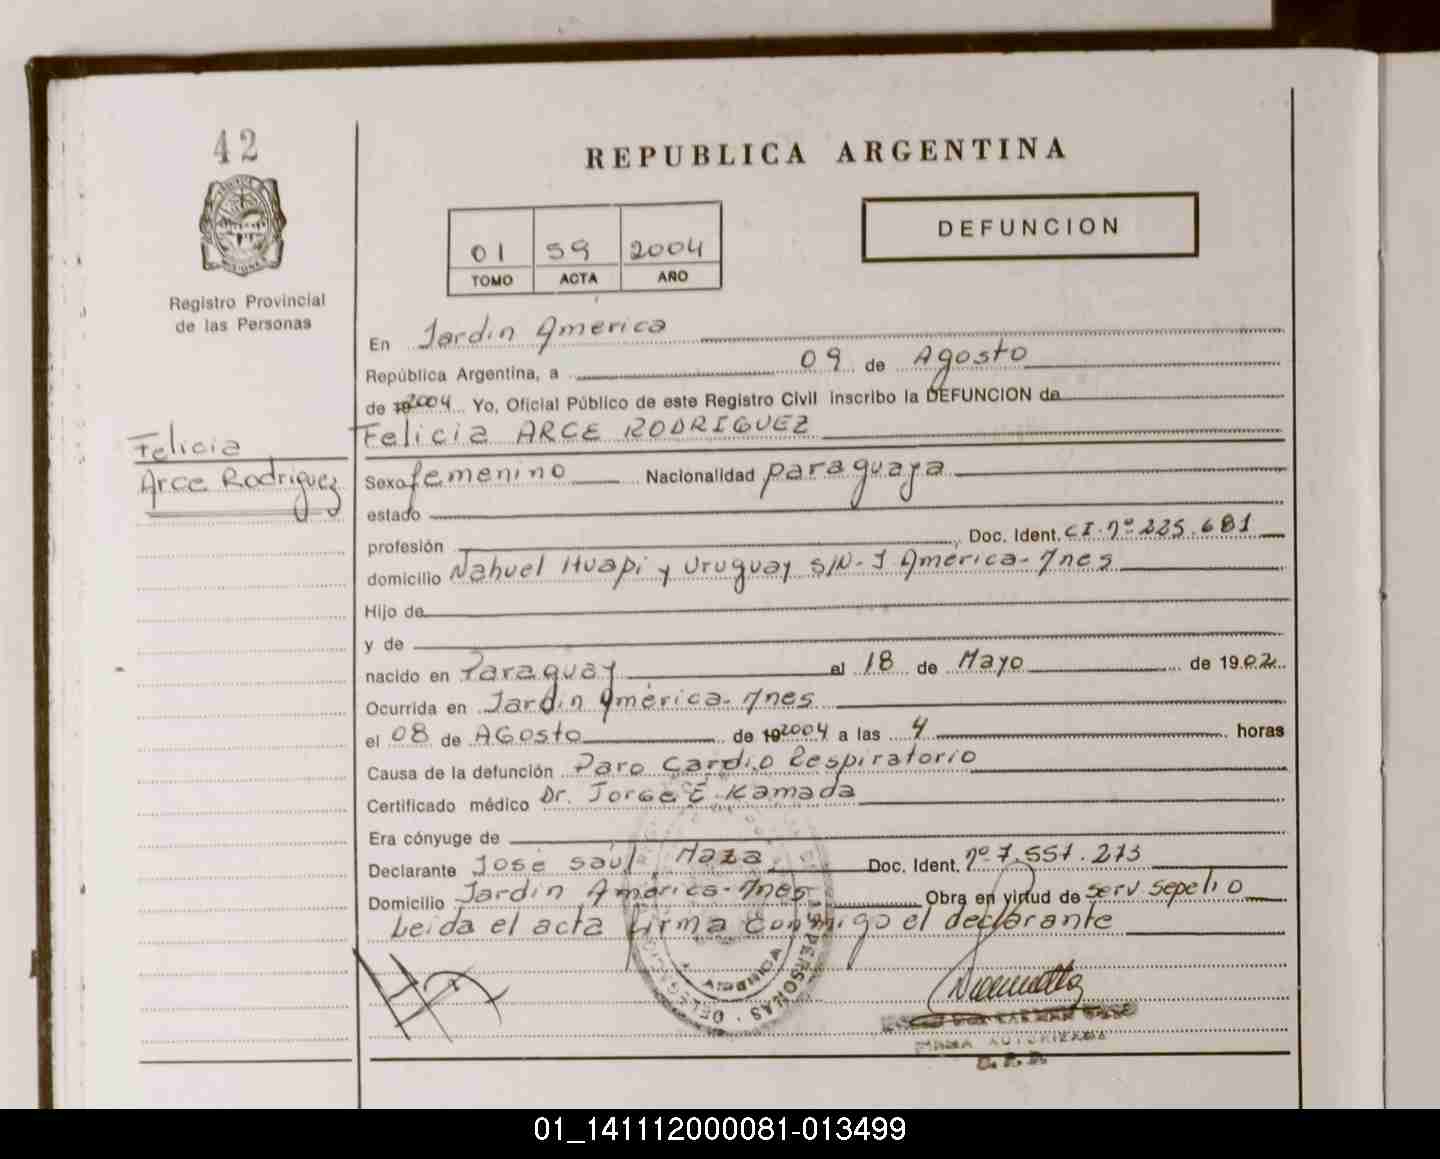 42
REPUBLICA ARGENTINA
DEFUNCION
01 59 2004
TOMO ACTA AÑO
Registro Provincial
de las Personas
En Jardin America
República Argentina, a 09 de Agosto
de 192004 Yo, Oficial Público de este Registro Civil inscribo la DEFUNCION de
Felicia ARCE RODRIGUEZ
Felicia
Arce Rodriguez
Sexo femenino Nacionalidad paraguaya
estado
profesión Doc. Ident. CI. nº 225.681
domicilio Nahuel Huapi y Uruguay S/N- J. America- Mnes
Hijo de
y de
nacido en Paraguay el 18 de Mayo de 1902
Ocurrida en Jardin América- Mnes
el 08 de AGosto de 192004 a las 4 horas
Causa de la defunción Paro Cardio Respiratorio
Certificado médico Dr. Jorge E. Kamada
Era cónyuge de
Declarante José Saúl Maza Doc. Ident. nº 7.557.273
Domicilio Jardin America- Mnes Obra en virtud de serv sepelio
Leida el acta firma conmigo el declarante
FIRMA AUTORIZADA
01_141112000081-013499